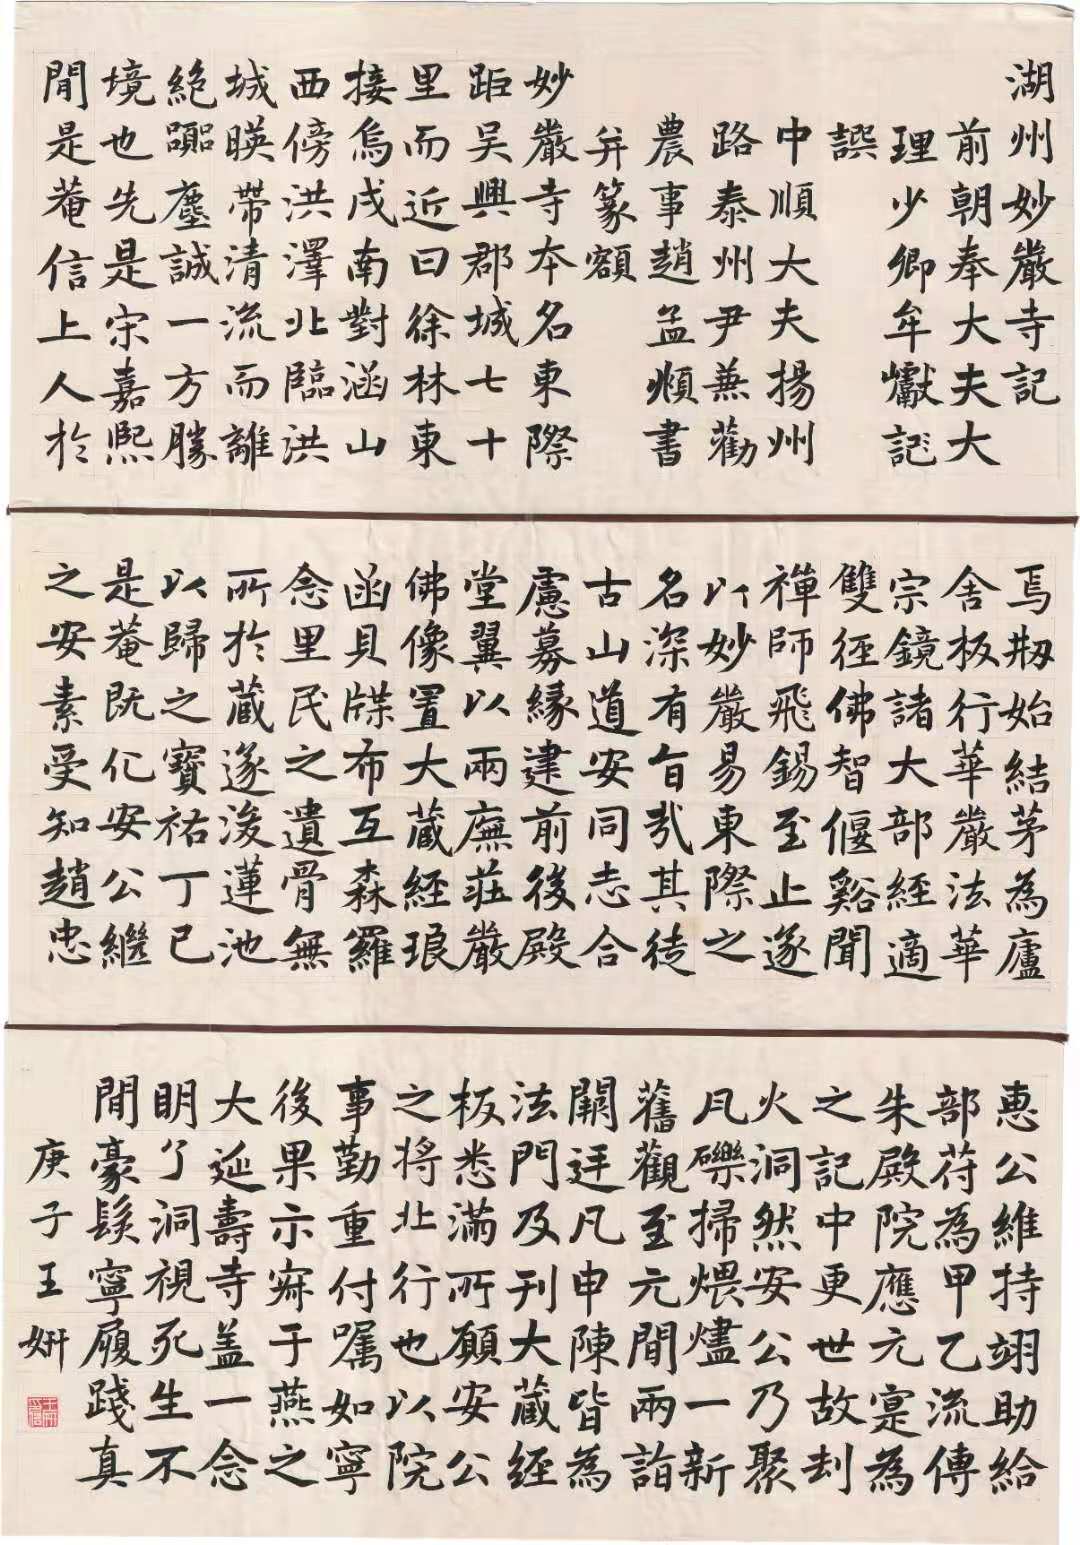 湖州妙嚴寺記
前朝奉大夫大
理少卿牟巘記
譔
中順大夫揚州
路泰州尹兼勸
農事趙孟頫書
并篆額
妙嚴寺本名東際
距吳興郡城七十
里而近曰徐林東
接烏戍南對涵山
西傍洪澤北臨洪
城暎帶清流而離
絶囂塵誠一方勝
境也先是宋嘉熙
閒是菴信上人於
焉剏始結茅為廬
舍板行華嚴法華
宗鏡諸大部經適
雙徑佛智偃谿聞
禪師飛錫至止遂
以妙嚴易東際之
名深有旨哉其徒
古山道安同志合
慮募緣建前後殿
堂翼以兩廡莊嚴
佛像置大蔵經琅
函貝牒布互森羅
念里民之遺骨無
所於蔵遂浚蓮池
以歸之寶祐丁巳
是菴既化安公繼
之安素受知趙忠
惠公維持翊助給
部苻為甲乙流傳
朱殿院應元寔為
之記中更世故刦
火洞然安公乃聚
凡礫掃煨燼一新
舊觀至元閒兩詣
闕廷凡申陳皆為
法門及刊大蔵經
板悉滿所願安公
之將北行也以院
事勤重付囑如寧
後果示寂于燕之
大延壽寺盖一念
明了洞視死生不
閒豪髮寧履踐真
庚子王妍